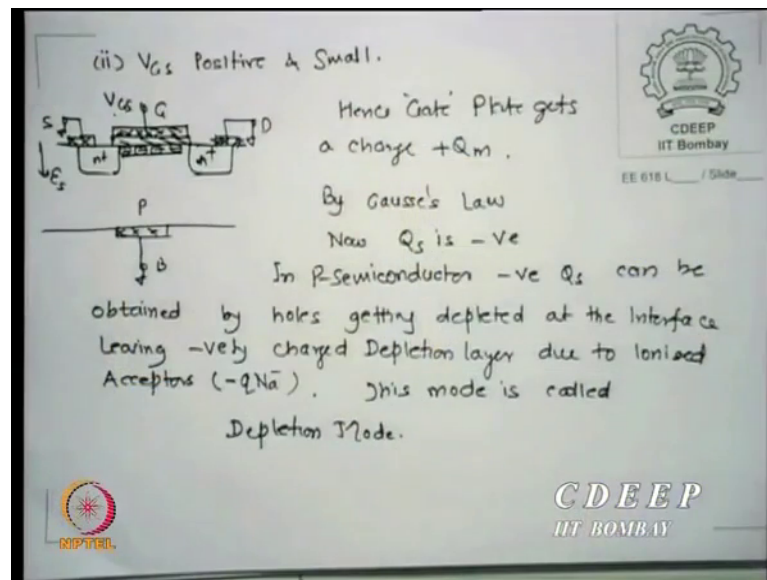 (ii) VGS Positive & Small.
VGS G
S
D
n+
n+
Es
P
B
Hence 'Gate' Plate gets
a charge +Qm.
By Gausse's Law
Now Qs is -ve
In P-Semiconductor -ve Qs can be
obtained by holes getting depleted at the Interface
Leaving -vely charged Depletion layer due to Ionised
Acceptors (-qNa-). This mode is called
Depletion Mode.
CDEEP
IIT Bombay
EE 618 L___ / Slide___
NPTEL
CDEEP
IIT BOMBAY